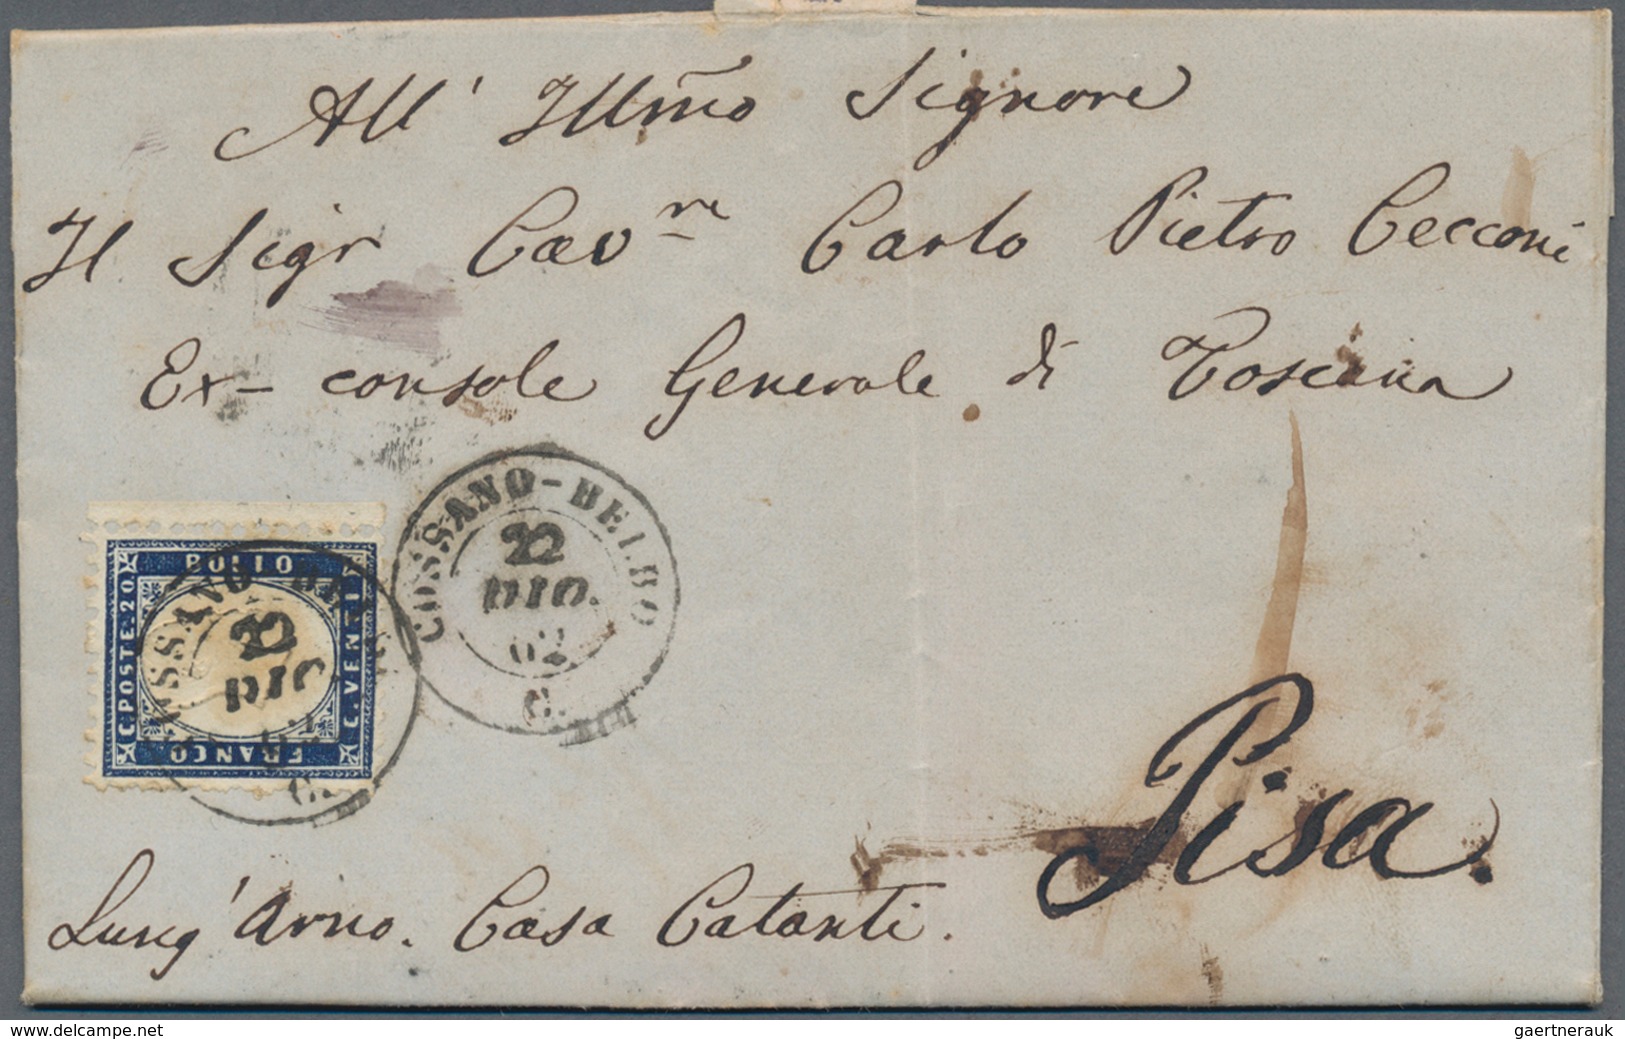 All' Illm̃o Signore
Il Sigr Cav.re Carlo Pietro Cecconi
Ex-console Generale di Toscana
COSSANO-BELBO
22
DIC.
62
C.
BOLLO
C. POSTE. 20.
C. VENTI
FRANCO
22
DIC
62
C.
Pisa.
Lung'Arno. Casa Catanti.
www.delcampe.net
gaertnerauk